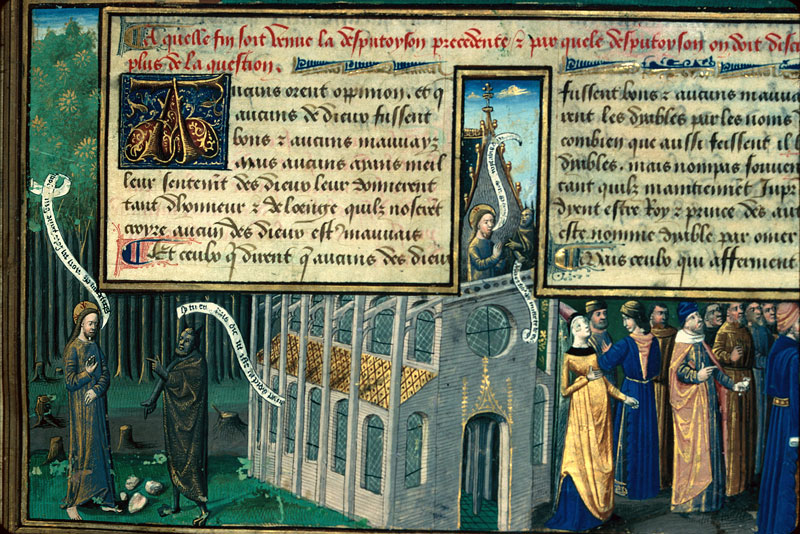 A quelle fin soit venue la desputoyson precedente & par quele desputoyson on doit disc
plus de la question.
Aucuns orent oppinion. et q
aucuns de dieux fussent
bons & aucuns mauvaiz
Mais aucuns aians meil
leur sentent des dieux leur donnerent
tant dhonneur & de louenge quilz noserent
croyre aucun des dieux est mauvais
Et ceulx q dirent q aucuns des dieux
fussent bons & aucuns mauva
rent les dyables par les noms
combien que aussi feissent il l
dyables. mais nompas souven
tant quilz maintiennent Jupi
dirent estre Roy & prince des au
este nomme dyable par omer
Mais ceulx qui afferment